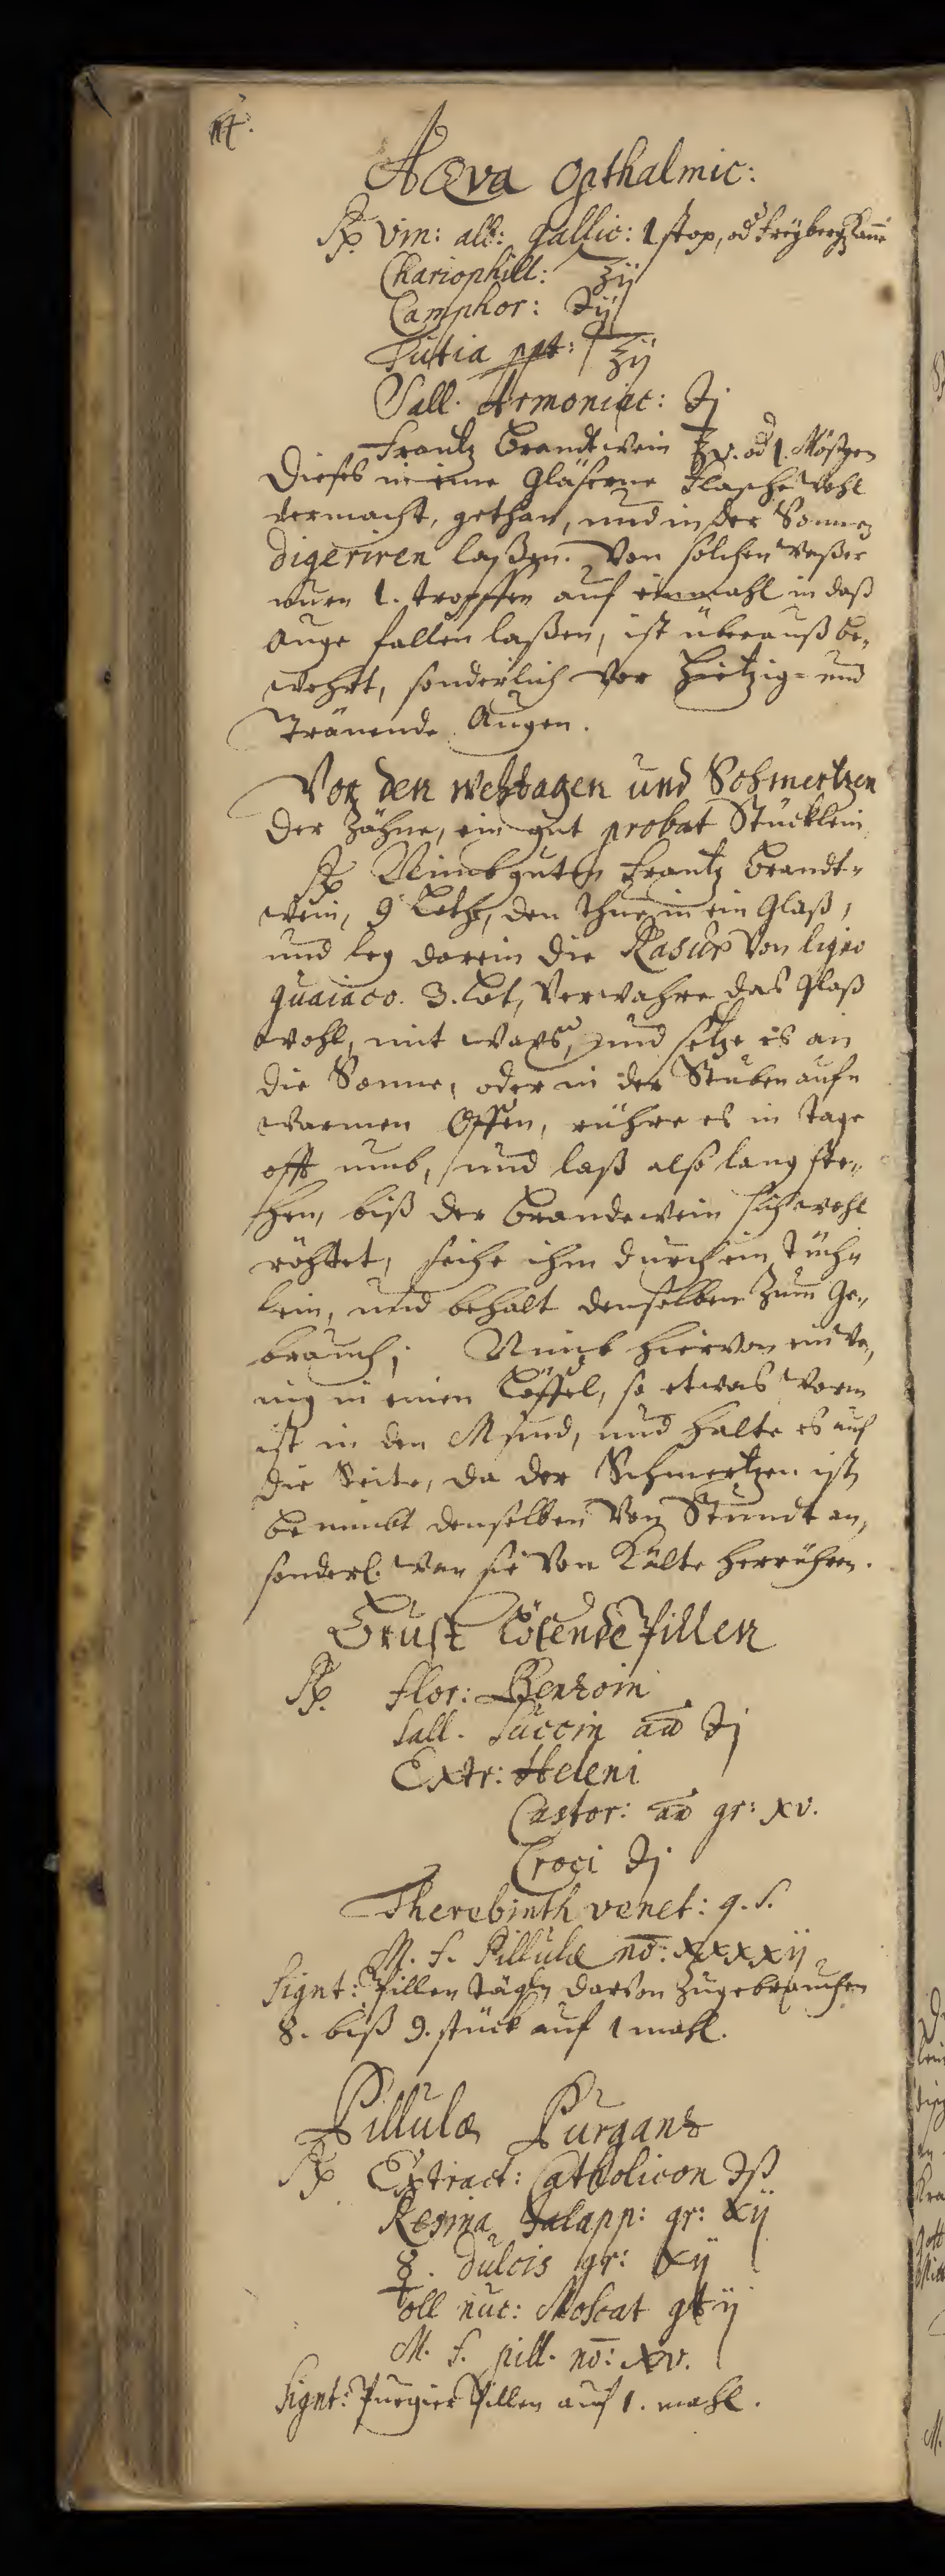 Aqva Opthalmic:
℞ Vin: alb: gallic: 1 stop, od Freyberg Kanne
Chariophill: ʒij
Camphor: ℈ij
Tutia ppt: ʒij
Sall. Armoniac: ℈j
Frantz Brandtwein ℥v. od 1. Nößgen
Dieses in eine Gläserne Flasche wohl
vermacht, gethan, und in der Sonnen
digeriren laßen. Von solchen Waßer
nurn 1. tropffen auf einmahl in daß
Auge fallen laßen, ist überauß be„
wehrt, sonderlich vor hietzig= und
Tränende Augen.
Vor den wehtagen und Schmertzen
der Zähne, ein gut probat Stücklein
℞ Nimb guten Frantz Brandt„
wein, 9 Loth, den thue in ein Glaß,
und leg darein die Rasur von ligno
guaiaco. 3. Lot, verwahre das Glaß
wohl, mit waxs, und setze es an
die Sonne, oder in der Stuben aufn
warmen Offen, rühre es in tage
offt umb, und laß also lang ste„
hen, biß der Brandewein sich wohl
röhtet, seihe ihm durch ein Tüch„
lein, und behalt denselben zum Ge„
brauch; Nimb hiervon ein we„
nig in einen Löffel, so etwas warm
ist in den Mund, und halte es auf
die Seite, da der Schmertzen ist,
benimbt denselben von Stundt an,
sonderl. wan sie von Kälte herrühren.
Brust Lösende Pillen
℞ flor: Benzoin
Sall. Succin aa ℈j
Extr: Heleni
Castor: aa gr: xv.
Croci ℈j
Therebinth venet: q. s.
M. f. Pillulæ no: xxxxij
Signt: Pillen tägl. darvon zugebrauchen
8. biß 9. stück auf 1 mahl.
Pillulæ Purgans
℞ Extract: Catholicon ℈ß
Resina Jalapp: gr: xij
☿. dulcis gr: xij
oll nuc: Moscat gtt ij
M. f. pill. no: xv.
Signt: Purgier Pillen auf 1. mahl.